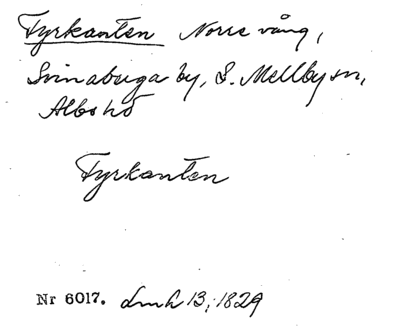 Fyrkanten Norre vång,
Svinabuga by, S. Mellby sn,
Albo hd
Fyrkanten
Nr 6017. Lmh 13; 1829